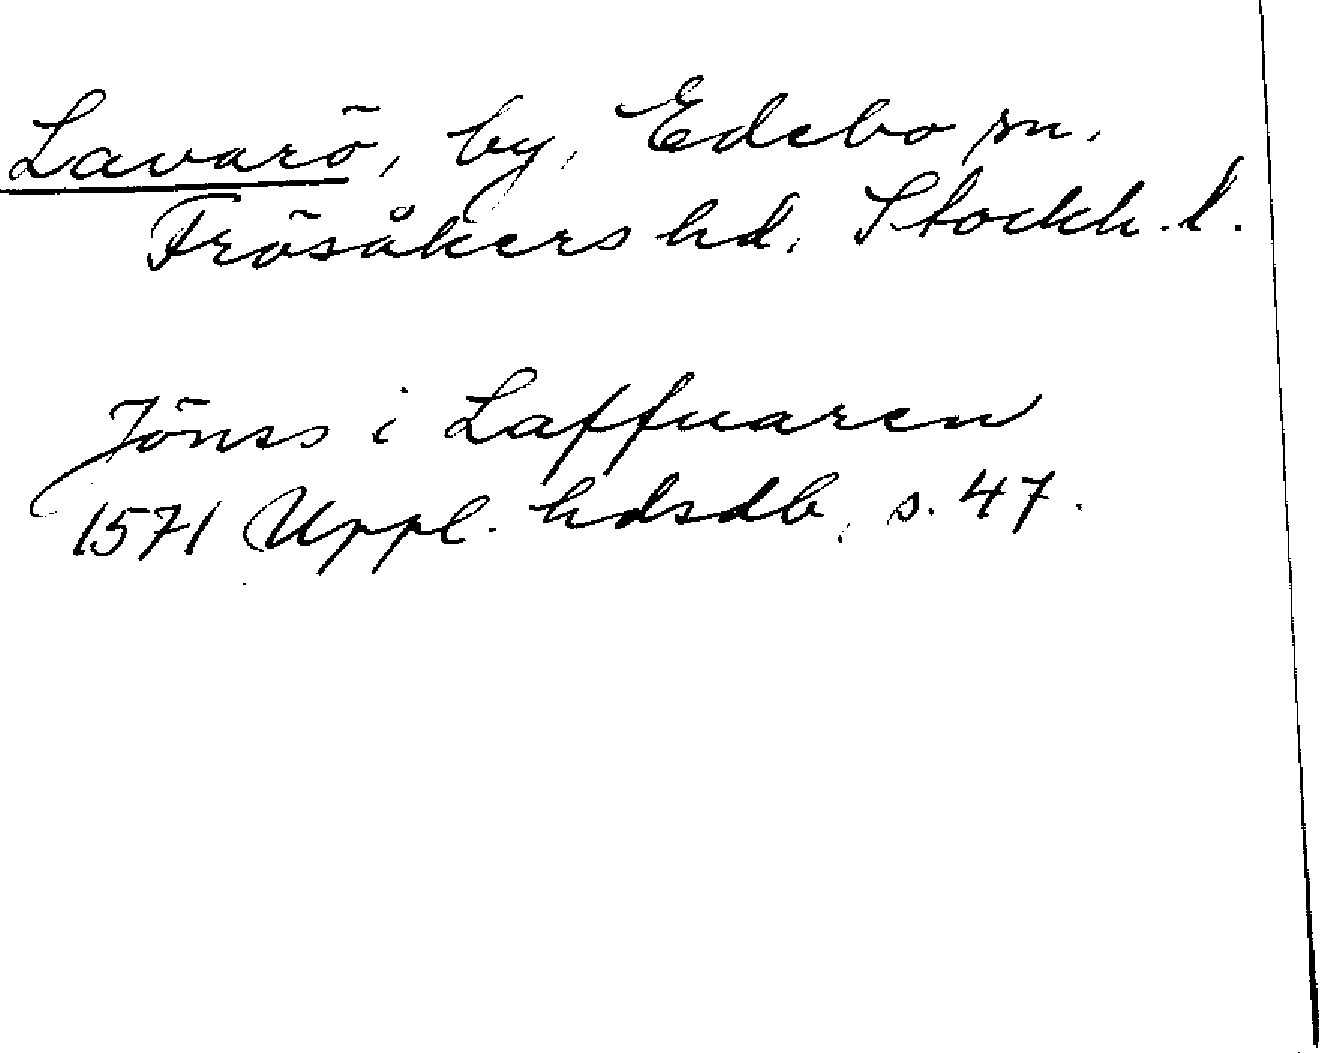 Lavarö, by, Edebo sn.
Frösåkers hd, Stockh. l.
Jönss i Laffuaren
1571 Uppl. hdsdb, s. 47.